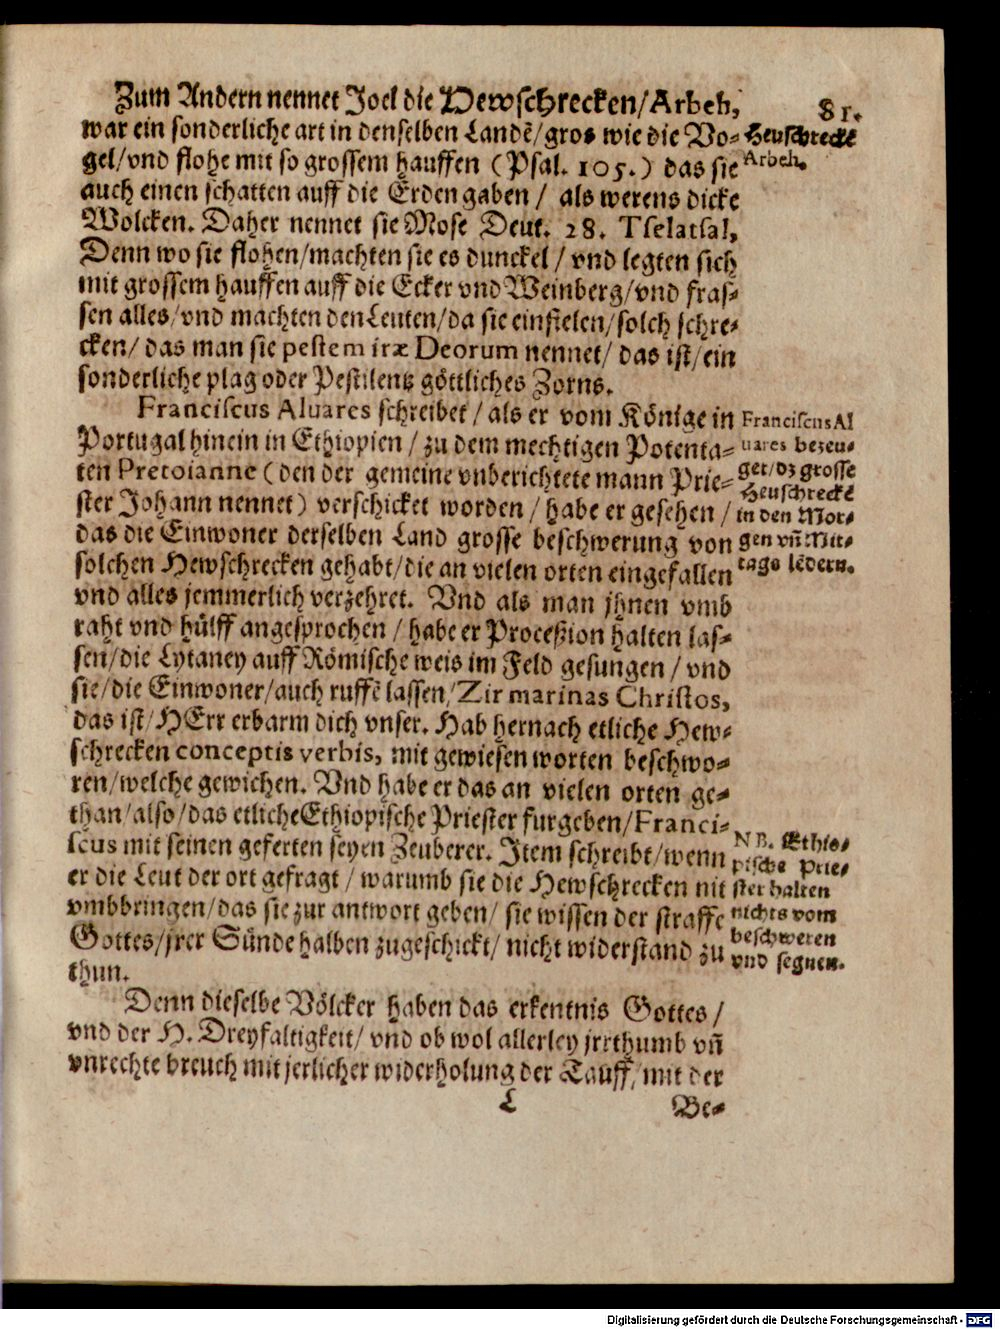 81.
Zum Andern nennet Joel die Hewschrecken/Arbeh,
war ein sonderliche art in denselben Landē/gros wie die Vo-
gel/vnd flohe mit so grossem hauffen (Psal. 105.) das sie
auch einen schatten auff die Erden gaben / als werens dicke
Wolcken. Daher nennet sie Mose Deut. 28. Tselatsal,
Denn wo sie flohen/machten sie es dunckel / vnd legten sich
mit grossem hauffen auff die Ecker vnd Weinberg/vnd fras-
sen alles/vnd machten den Leuten/da sie einfielen/solch schre-
cken/ das man sie pestem iræ Deorum nennet/ das ist/ein
sonderliche plag oder Pestilentz göttliches Zorns.
Franciscus Aluares schreibet / als er vom Könige in
Portugal hinein in Ethiopien / zu dem mechtigen Potenta-
ten Pretoianne (den der gemeine vnberichtete mann Prie-
ster Johann nennet) verschicket worden / habe er gesehen /
das die Einwoner derselben Land grosse beschwerung von
solchen Hewschrecken gehabt/die an vielen orten eingefallen
vnd alles jemmerlich verzehret. Vnd als man jhnen vmb
raht vnd hülff angesprochen / habe er Proceßion halten las-
sen/die Lytaney auff Römische weis im Feld gesungen / vnd
sie/die Einwoner/auch ruffē lassen/Zir marinas Christos,
das ist/HErr erbarm dich vnser. Hab hernach etliche Hew-
schrecken conceptis verbis, mit gewiesen worten beschwo-
ren/welche gewichen. Vnd habe er das an vielen orten ge-
than/also/das etliche Ethiopische Priester furgeben/Franci-
scus mit seinen geferten seyen Zeuberer. Item schreibt/wenn
er die Leut der ort gefragt / warumb sie die Hewschrecken nit
vmbbringen/das sie zur antwort geben/ sie wissen der straffe
Gottes/jrer Sünde halben zugeschickt/ nicht widerstand zu
thun.
Denn dieselbe Völcker haben das erkentnis Gottes /
vnd der H. Dreyfaltigkeit/ vnd ob wol allerley jrrthumb vñ
vnrechte breuch mit jerlicher widerholung der Tauff/mit der
L Be-
Heuschreckē
Arbeh.
Franciscus Al
uares bezeu-
get/dz grosse
Heuschreckē
in den Mor-
gen vñ Mit-
tags lēdern.
NB. Ethio-
pische Prie-
ster halten
nichts vom
beschweren
vnd segnen.
Digitalisierung gefördert durch die Deutsche Forschungsgemeinschaft - DFG